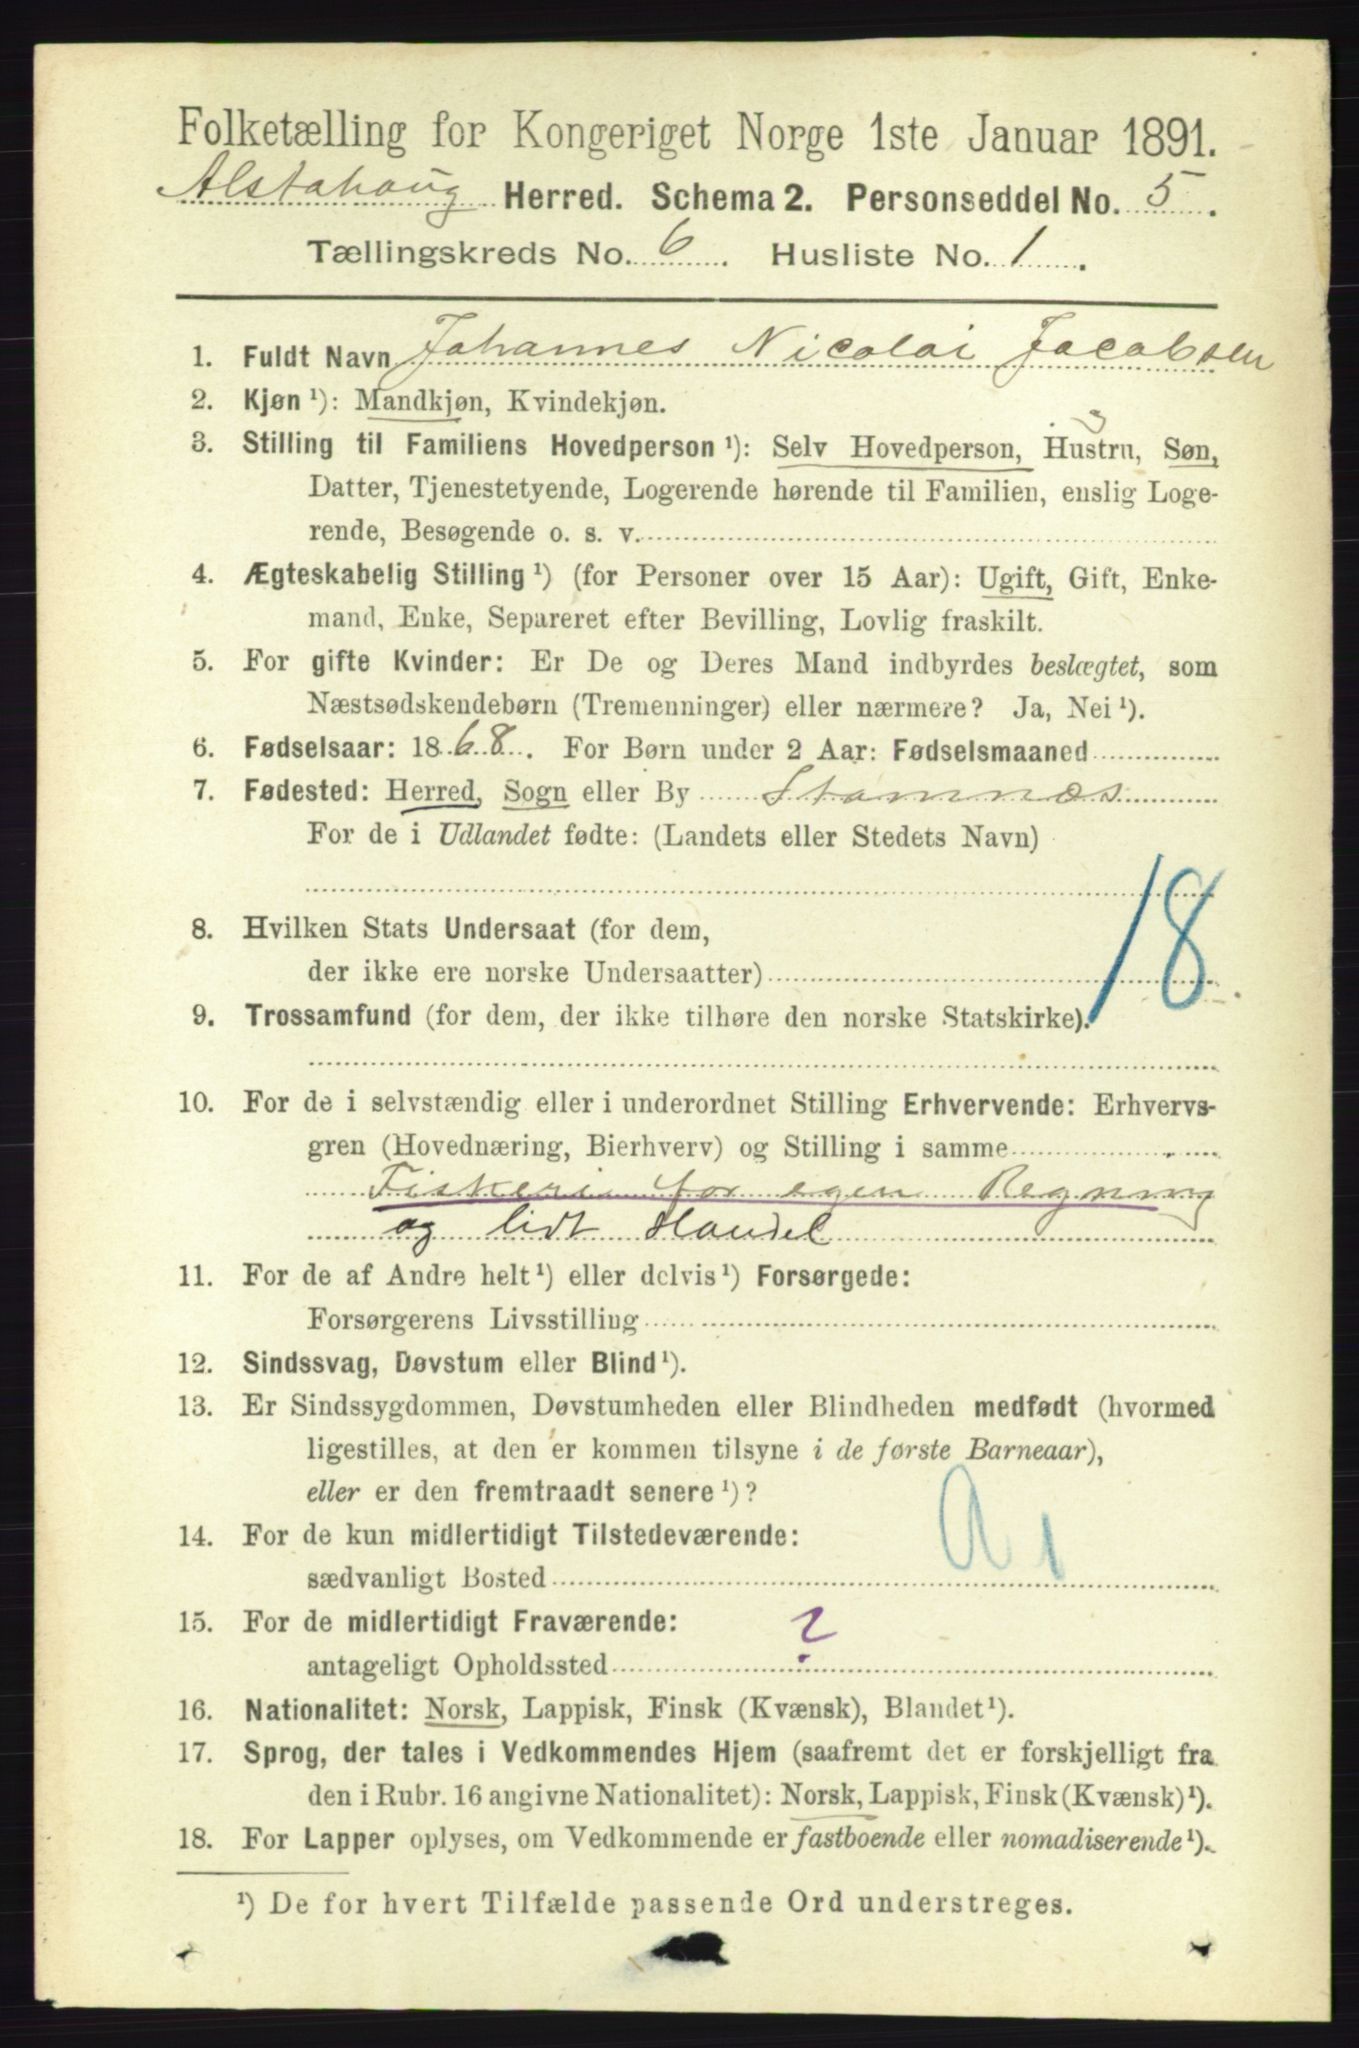 Folketælling for Kongeriget Norge 1ste Januar 1891.
Alstahoug Herred. Schema 2. Personseddel No. 5.
Tællingskreds No. 6. Husliste No. 1.
1. Fuldt Navn Johannes Nicolai Jacobsen
2. Kjøn ¹): Mandkjøn, Kvindekjøn.
3
3. Stilling til Familiens Hovedperson ¹): Selv Hovedperson, Hustru, Søn,
Datter, Tjenestetyende, Logerende hørende til Familien, enslig Loge-
rende, Besøgende o. s. v.
4. Ægteskabelig Stilling ¹) (for Personer over 15 Aar): Ugift, Gift, Enke-
mand, Enke, Separeret efter Bevilling, Lovlig fraskilt.
5. For gifte Kvinder: Er De og Deres Mand indbyrdes beslægtet, som
Næstsødskendebørn (Tremenninger) eller nærmere? Ja, Nei ¹).
6. Fødselsaar: 1868. For Børn under 2 Aar: Fødselsmaaned
7. Fødested: Herred, Sogn eller By Stamnæs
For de i Udlandet fødte: (Landets eller Stedets Navn)
18
8. Hvilken Stats Undersaat (for dem,
der ikke ere norske Undersaatter)
9. Trossamfund (for dem, der ikke tilhøre den norske Statskirke).
10. For de i selvstændig eller i underordnet Stilling Erhvervende: Erhvervs-
gren (Hovednæring, Bierhverv) og Stilling i samme
Fiskeri for egen Regning
og lidt Handel
11. For de af Andre helt ¹) eller delvis ¹) Forsørgede:
Forsørgerens Livsstilling
12. Sindssvag, Døvstum eller Blind ¹).
13. Er Sindssygdommen, Døvstumheden eller Blindheden medfødt (hvormed
ligestilles, at den er kommen tilsyne i de første Barneaar),
eller er den fremtraadt senere ¹)?
14. For de kun midlertidigt Tilstedeværende:
sædvanligt Bosted
15. For de midlertidigt Fraværende: ?
antageligt Opholdssted
16. Nationalitet: Norsk, Lappisk, Finsk (Kvænsk), Blandet ¹).
17. Sprog, der tales i Vedkommendes Hjem (saafremt det er forskjelligt fra
den i Rubr. 16 angivne Nationalitet): Norsk, Lappisk, Finsk (Kvænsk) ¹).
18. For Lapper oplyses, om Vedkommende er fastboende eller nomadiserende ¹).
¹) De for hvert Tilfælde passende Ord understreges.